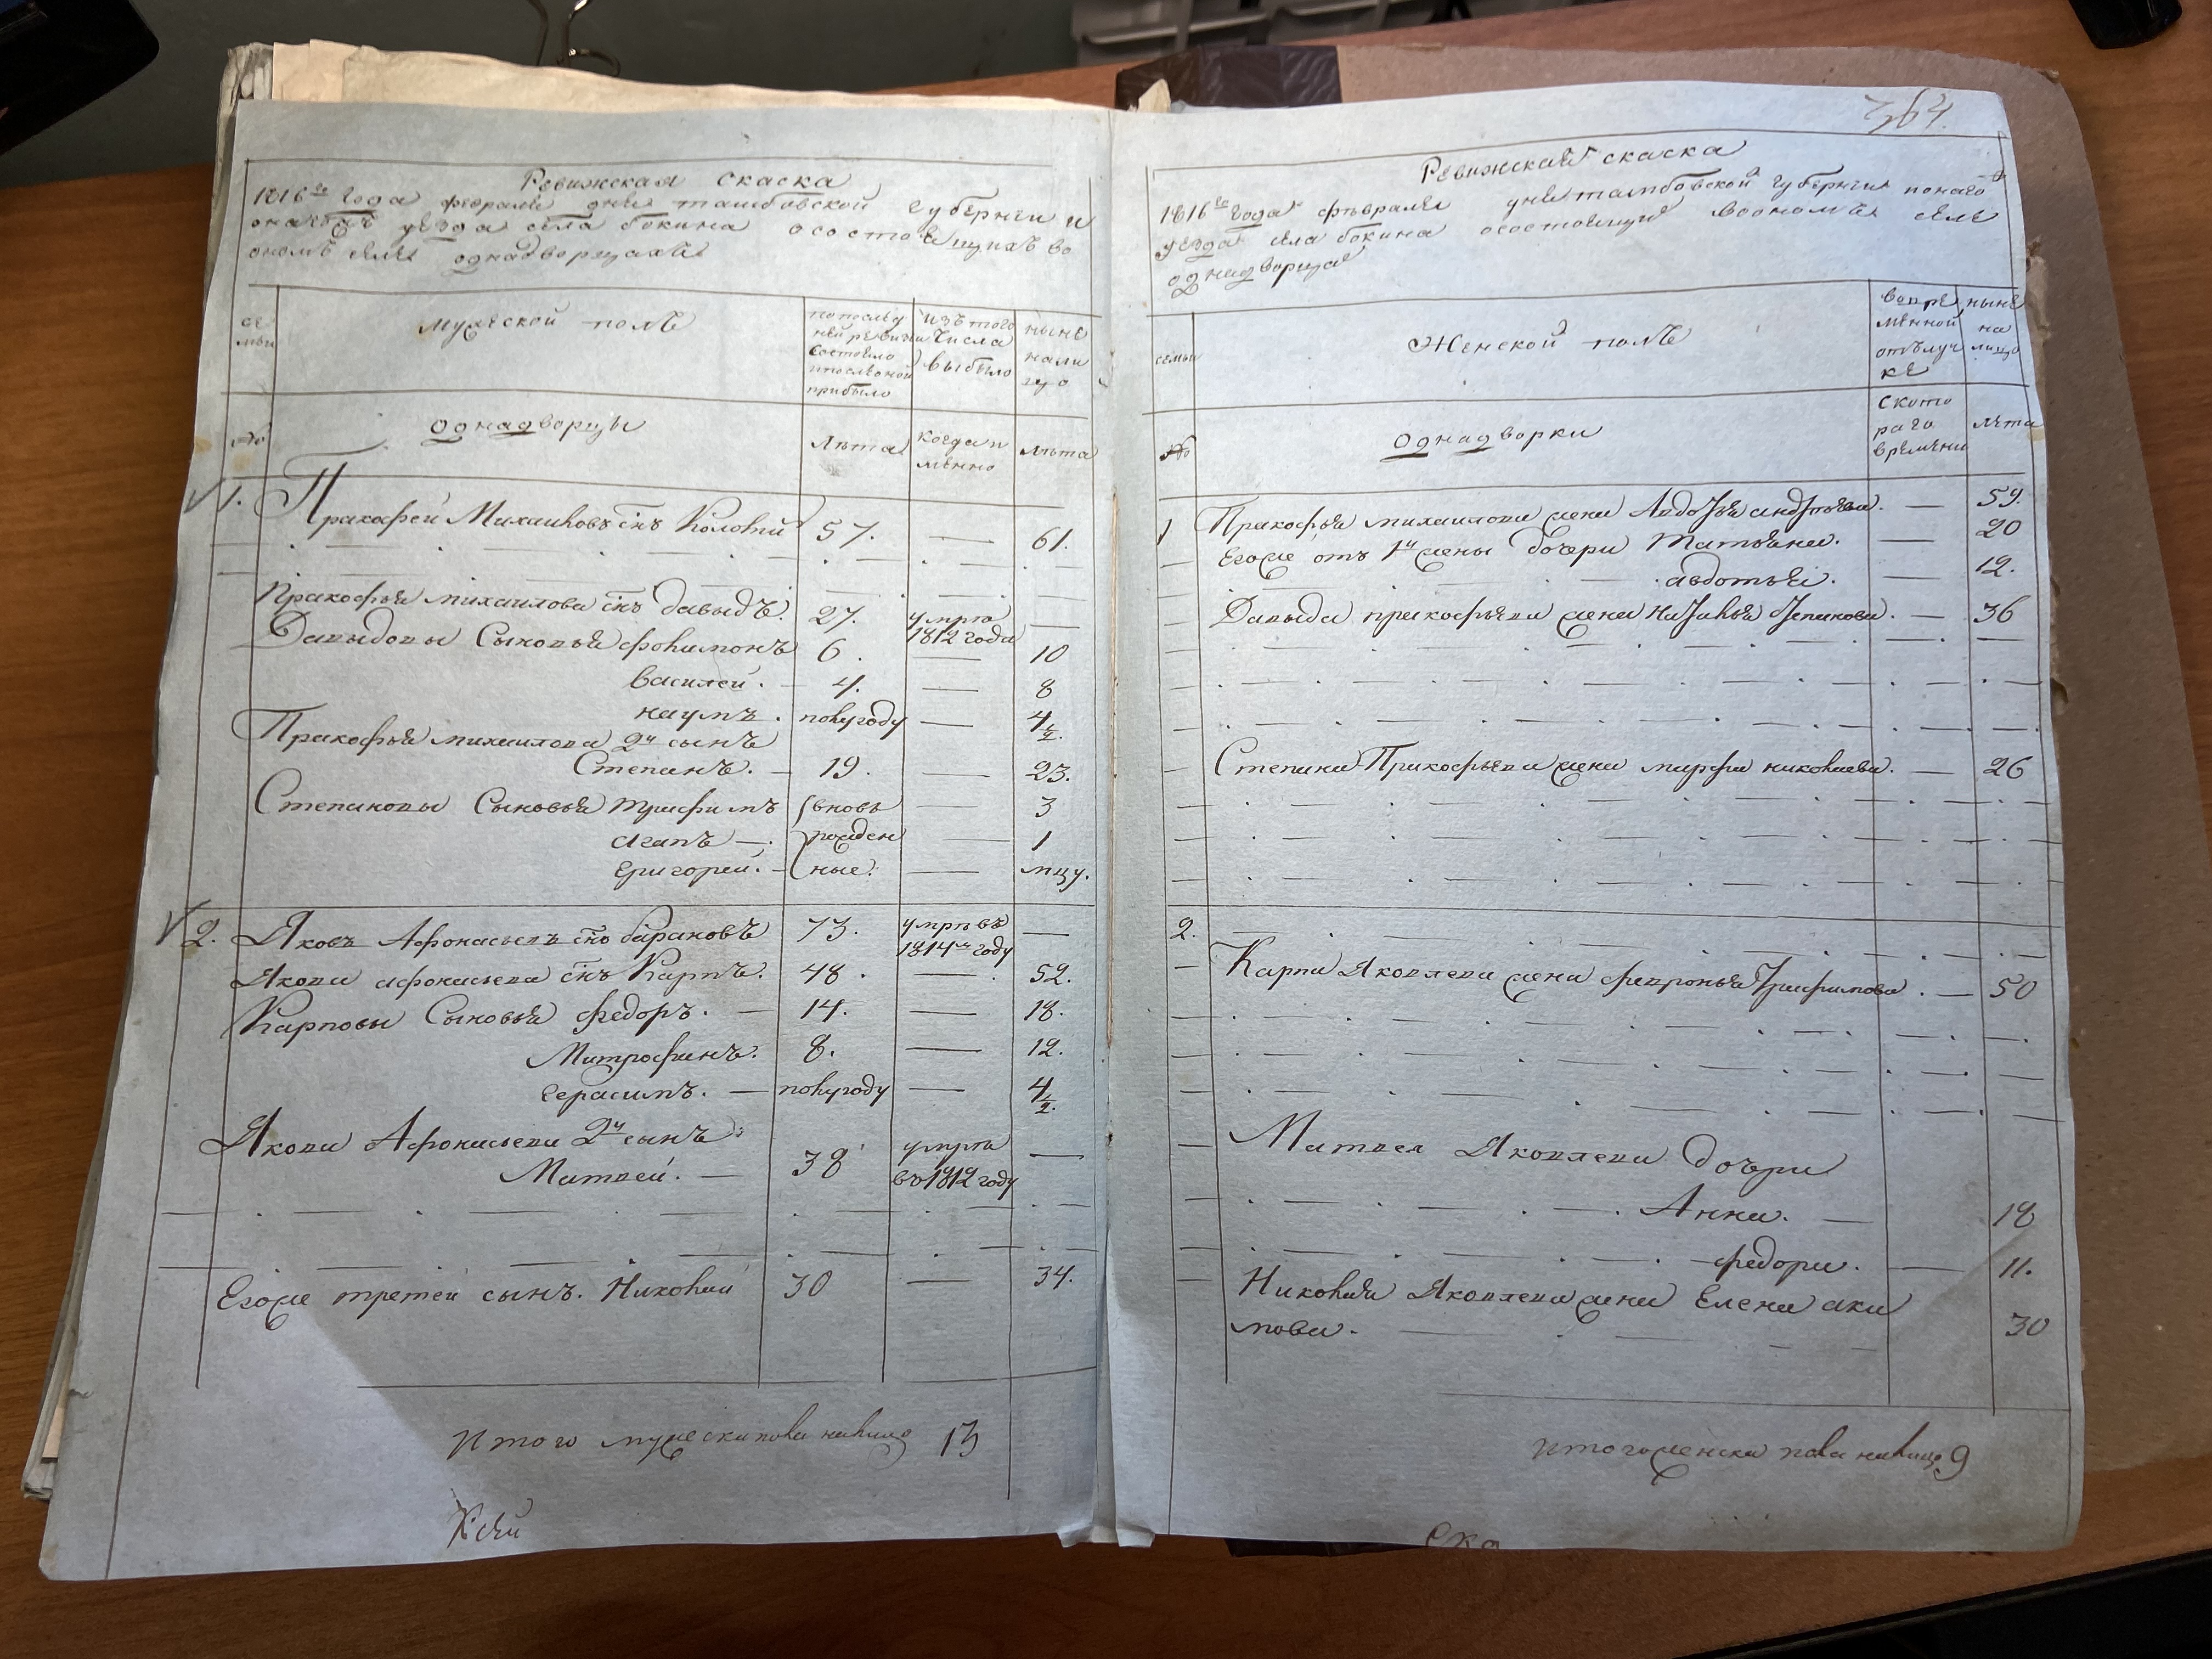 Ревижская скаска
1816го года февраля дня тамбовской губернии и
онагожъ уезда села бокина осостоящихъ во
ономъ селе однадворцахъ
се
мьи
мужеской полъ
попослед
ней ревизии
состояло
ипослеоной
прибыло
изътого
числа
выбыло
ныне
нали
цо
№
однадворцы
лѣта
когда и
мѣнно
лѣта
1. Пракофей Михаиловъ снъ Коловий 57. — 61.
Пракофья михаилова снъ давыдъ. 27. умре 1812 года —
Давыдовы Сыновья филимонъ 6. — 10
василей. — 4. — 8
наумъ. полугоду — 4 1/2.
Пракофья михаилова 2й сынъ
Степанъ. — 19. — 23.
Степановы Сыновья трифимъ вновь — 3
агапъ —. рожден — 1
григорей. — ные: — мцу.
2. Яковъ Афонасьевъ снъ барановъ 73. умре въ 1814м году —
Якова афонасьева снъ Карпъ. 48. — 52.
Карповы Сыновья федоръ. — 14. — 18.
Митрофанъ. 8. — 12.
герасимъ. — полугоду — 4 1/2.
Якова Афонасьева 2й сынъ:
Матвей. — 38 умре въ 1812 году —
Егоже третей сынъ. Николай 30 — 34.
Итого мужеска пола налицо 13
364.
Ревижской скаска
1816го года февраля дня тамбовской губернии тогожъ
уезда села бокина осостоящие воономъ селе
однадворца
семьи
Женской полъ
вовре
мѣнной
отълуч
ке
ныне
на
лицо
№
Однадворки
ското
раго
времени
лѣта
1 Пракофья михаилова жена Авдотья андреева. — 59.
Егоже отъ 1й жены дочери Татьяна. — 20
авдотья. — 12.
Давыда пракофьева жена Наталья Степанова. — 36
Степана Пракофьева жена марфа николаева. — 26
2.
Карпа Яковлева жена феврония Трифимова. — 50
Матвея Яковлева дочери
Анна. — 18
федора. — 11.
Николая Яковлева жена Елена аки
мова. — 30
Итого женска пола налицо 9